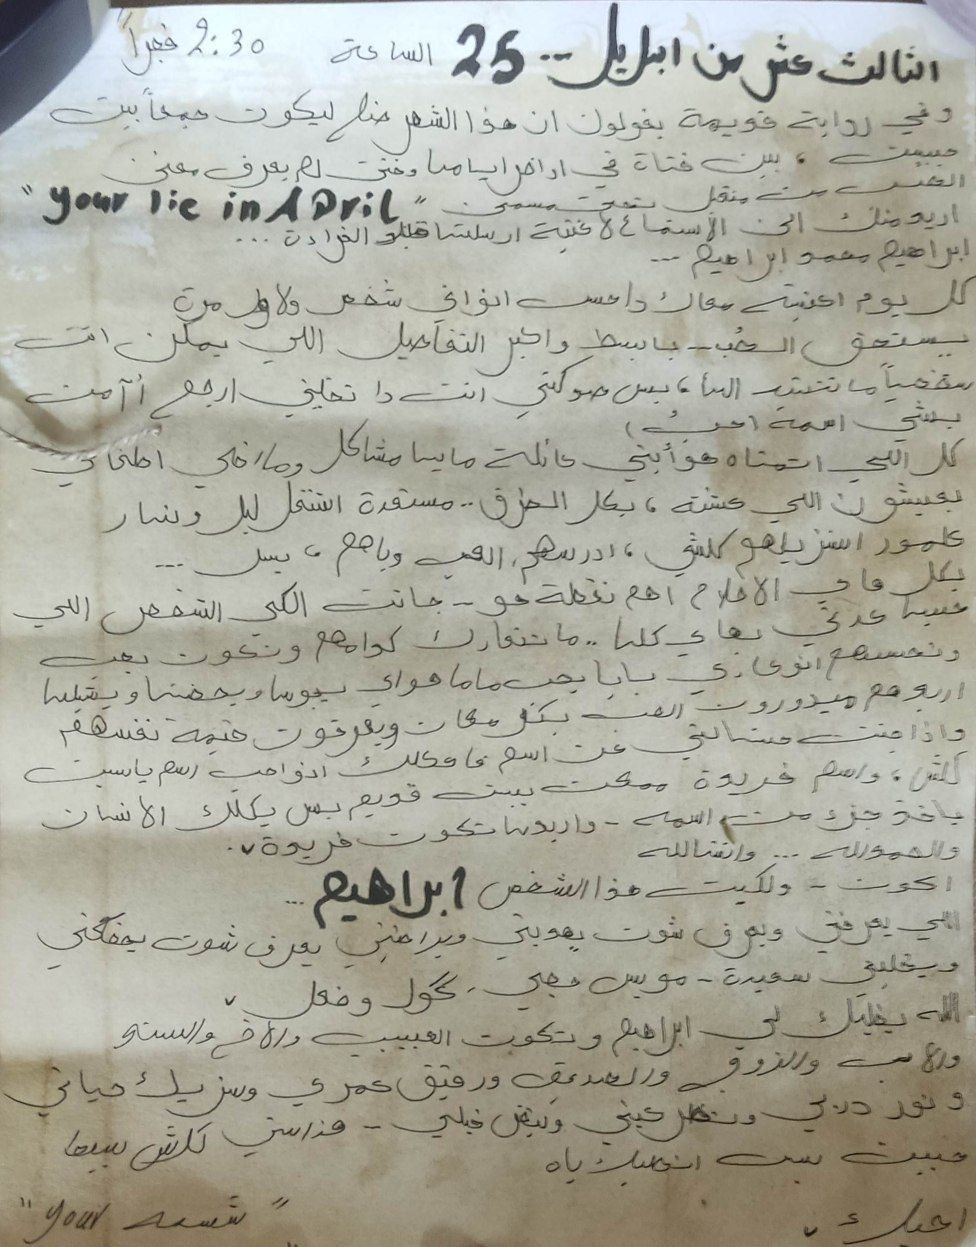 الثالث عشر من ابريل .. 25 الساعة 2:30 فجراً
وفي رواية قديمة يقولون ان هذا الشهر خلق ليكون جمعاً بين
حبيبين ، بين فتاة في اواخر ايامها وفتى لم يعرف معنى
الحب من منظر تحت مسمى "your lie in April"
اريد منك الى الإستماع لاغنية ارسلتها قبل القراءة ...
ابراهيم محمد ابراهيم ...
كل يوم اعيشه معاك داحس انو اني شخص ولاول مرة
يستحق الحُب - بابسط واكبر التفاصيل اللي يمكن انت
شخصياً ما تنتبه الها ، بس هو كلي انت دا تخليني ارجع أآمن
بشي اسمه (حبُ)
كل اللي اتمناه هو أبني عائلة مابيها مشاكل وما اخلي اطفالي
يعيشون اللي عشته ، بكل الطرق .. مستعدة اشتغل ليل ونهار
علمود اسويلهم كلشي ، ادرسهم العب وياهم ، بس ...
بكل هاي الاحلام اهم نقطة هو - جانت الكي الشخص اللي
يحبها كدي بهاي كلها .. ما نتعارك كدامهم ونكون بحب
ونحسسهم انوي بابا يحب ماما هواي يبوسها ويحضنها ويقبلها
اريدهم ميدورون الحب بكل مكان ويعرفون قيمة نفسهم
واذا جنت مسالتني عن اسم فاحكلك انو احب اسم ياسين
كلش ، واسم فريدة ممكن يبين قديم بس يكلك الانسان
ياخذ جزء من اسمه - واريدها تكون فريدة .
والحمدلله ... وانشالله
اكون - ولكيت هذا الشخص ابراهيم ...
اللي يعرفني ويعرف شون يهديني ويراضيني يعرف شون يضحكني
ويخليني سعيدة - مو بس حجي ، كول وفعل
الله يخليك لي ابراهيم وتكون الحبيب والاخ والسند
والاب والزوج والصديق ورفيق عمري وشريك حياتي
ونور دربي ونظر عيني ونبض قلبي - هذا شي كلش بسيط
حبيت بس احليلك ياه
احبك
"your شمسه"